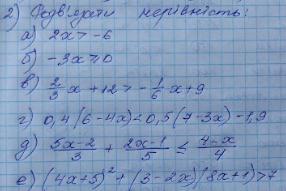 2) Розв'язати нерівність:
а) 2x > -6
б) -3x ≥ 0
в) 2/3 x + 12 > -1/6 x + 9
г) 0,4(6-4x) < 0,5(7-3x) - 1,9
д) (5x-2)/3 + (2x-1)/5 ≤ (4-x)/4
е) (4x+5)² + (3-2x)(8x+1) > 7